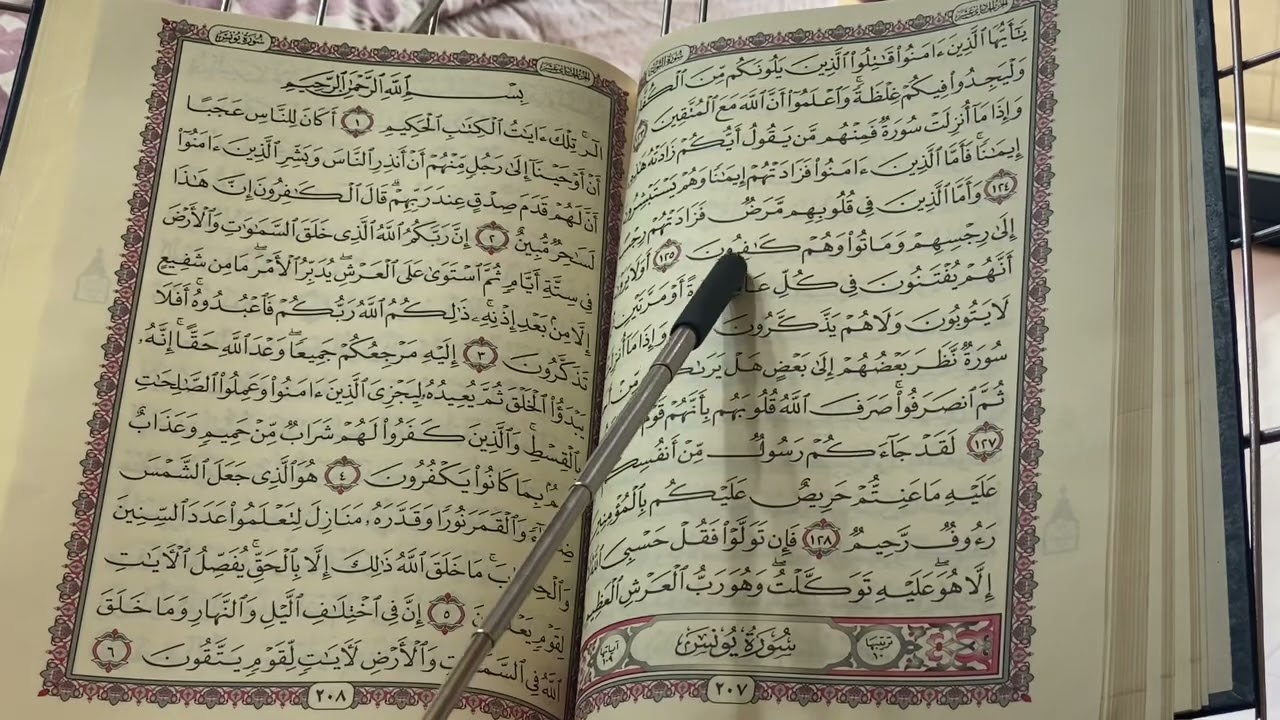 سُورَةُ التَّوْبَةِ
الجُزْءُ الحَادِيَ عَشَرَ
يَٰٓأَيُّهَا ٱلَّذِينَ ءَامَنُوا۟ قَٰتِلُوا۟ ٱلَّذِينَ يَلُونَكُم مِّنَ
وَلْيَجِدُوا۟ فِيكُمْ غِلْظَةً ۚ وَٱعْلَمُوٓا۟ أَنَّ ٱللَّهَ مَعَ ٱلْمُتَّقِينَ
وَإِذَا مَآ أُنزِلَتْ سُورَةٌ فَمِنْهُم مَّن يَقُولُ أَيُّكُمْ زَادَتْهُ
إِيمَٰنًا ۚ فَأَمَّا ٱلَّذِينَ ءَامَنُوا۟ فَزَادَتْهُمْ إِيمَٰنًا وَهُمْ يَسْتَبْشِرُونَ
١٢٤ وَأَمَّا ٱلَّذِينَ فِى قُلُوبِهِم مَّرَضٌ فَزَادَتْهُمْ
إِلَىٰ رِجْسِهِمْ وَمَاتُوا۟ وَهُمْ كَٰفِرُونَ ١٢٥
أَنَّهُمْ يُفْتَنُونَ فِى كُلِّ أَوْ مَرَّتَيْنِ
لَا يَتُوبُونَ وَلَا هُمْ يَذَّكَّرُونَ وَإِذَا مَآ
سُورَةٌ نَّظَرَ بَعْضُهُمْ إِلَىٰ بَعْضٍ هَلْ
ثُمَّ ٱنصَرَفُوا۟ ۚ صَرَفَ ٱللَّهُ قُلُوبَهُم بِأَنَّهُمْ قَوْمٌ
١٢٧ لَقَدْ جَآءَكُمْ رَسُولٌ مِّنْ
عَلَيْهِ مَا عَنِتُّمْ حَرِيصٌ عَلَيْكُم بِٱلْمُؤْمِنِينَ
رَءُوفٌ رَّحِيمٌ ١٢٨ فَإِن تَوَلَّوْا۟ فَقُلْ حَسْبِىَ ٱللَّهُ
إِلَّا هُوَ ۖ عَلَيْهِ تَوَكَّلْتُ ۖ وَهُوَ رَبُّ ٱلْعَرْشِ ٱلْعَظِيمِ
ترتيبها ١٠ سُورَةُ يُونُسَ آياتها ١٠٩
٢٠٧
سُورَةُ يُونُسَ
الجُزْءُ الحَادِيَ عَشَرَ
بِسْمِ ٱللَّهِ ٱلرَّحْمَٰنِ ٱلرَّحِيمِ
الٓر ۚ تِلْكَ ءَايَٰتُ ٱلْكِتَٰبِ ٱلْحَكِيمِ ١ أَكَانَ لِلنَّاسِ عَجَبًا
أَنْ أَوْحَيْنَآ إِلَىٰ رَجُلٍ مِّنْهُمْ أَنْ أَنذِرِ ٱلنَّاسَ وَبَشِّرِ ٱلَّذِينَ ءَامَنُوٓا۟
أَنَّ لَهُمْ قَدَمَ صِدْقٍ عِندَ رَبِّهِمْ ۗ قَالَ ٱلْكَٰفِرُونَ إِنَّ هَٰذَا
لَسَٰحِرٌ مُّبِينٌ ٢ إِنَّ رَبَّكُمُ ٱللَّهُ ٱلَّذِى خَلَقَ ٱلسَّمَٰوَٰتِ وَٱلْأَرْضَ
فِى سِتَّةِ أَيَّامٍ ثُمَّ ٱسْتَوَىٰ عَلَى ٱلْعَرْشِ ۖ يُدَبِّرُ ٱلْأَمْرَ ۖ مَا مِن شَفِيعٍ
إِلَّا مِنۢ بَعْدِ إِذْنِهِۦ ۚ ذَٰلِكُمُ ٱللَّهُ رَبُّكُمْ فَٱعْبُدُوهُ ۚ أَفَلَا
تَذَكَّرُونَ ٣ إِلَيْهِ مَرْجِعُكُمْ جَمِيعًا ۖ وَعْدَ ٱللَّهِ حَقًّا ۚ إِنَّهُۥ
يَبْدَؤُا۟ ٱلْخَلْقَ ثُمَّ يُعِيدُهُۥ لِيَجْزِىَ ٱلَّذِينَ ءَامَنُوا۟ وَعَمِلُوا۟ ٱلصَّٰلِحَٰتِ
بِٱلْقِسْطِ ۚ وَٱلَّذِينَ كَفَرُوا۟ لَهُمْ شَرَابٌ مِّنْ حَمِيمٍ وَعَذَابٌ
بِمَا كَانُوا۟ يَكْفُرُونَ ٤ هُوَ ٱلَّذِى جَعَلَ ٱلشَّمْسَ
وَٱلْقَمَرَ نُورًا وَقَدَّرَهُۥ مَنَازِلَ لِتَعْلَمُوا۟ عَدَدَ ٱلسِّنِينَ
مَا خَلَقَ ٱللَّهُ ذَٰلِكَ إِلَّا بِٱلْحَقِّ ۚ يُفَصِّلُ ٱلْءَايَٰتِ
لِقَوْمٍ ٥ إِنَّ فِى ٱخْتِلَٰفِ ٱلَّيْلِ وَٱلنَّهَارِ وَمَا خَلَقَ
ٱللَّهُ فِى وَٱلْأَرْضِ لَءَايَٰتٍ لِّقَوْمٍ يَتَّقُونَ ٦
٢٠٨